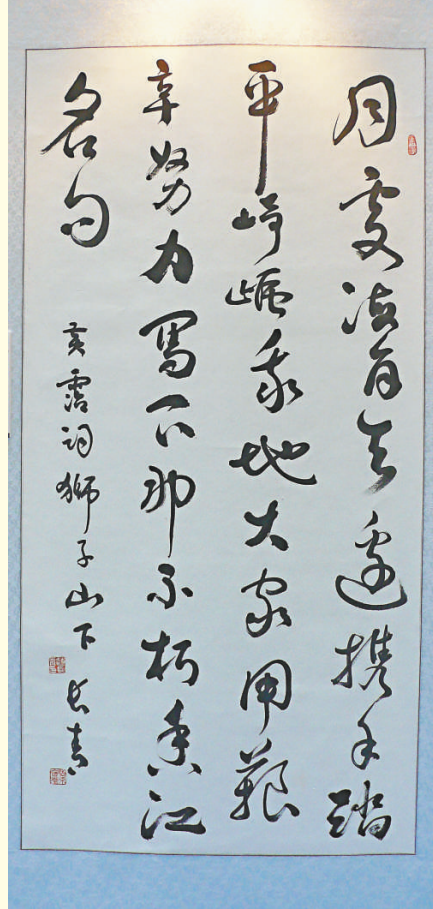 同處海角天邊携手踏
平崎嶇我地大家用艱
辛努力寫下那不朽香江
名句
黃霑詞獅子山下